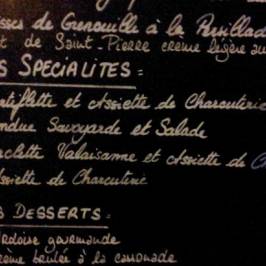 sses de Grenouille à la Persillad
t de Saint-Pierre creme légère au
S SPECIALITES :
rtiflette et Assiette de Charcuterie
ndue Savoyarde et Salade
clette Valaisanne et Assiette de C
ssiette de Charcuterie
S DESSERTS :
rdoise gourmande
rème brulée à la cassonade